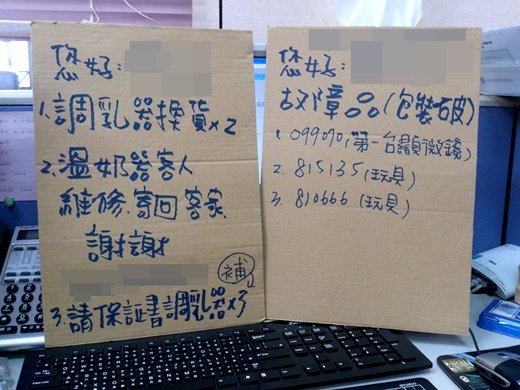 您好:
1.調乳器換貨x2
2.溫奶器客人
維修.寄回客家
謝謝
補
3.請保証書調乳器x3
您好:
故障品(包裝破)
1.099070,第一台顯微鏡
2.815135(玩具)
3.810666(玩具)